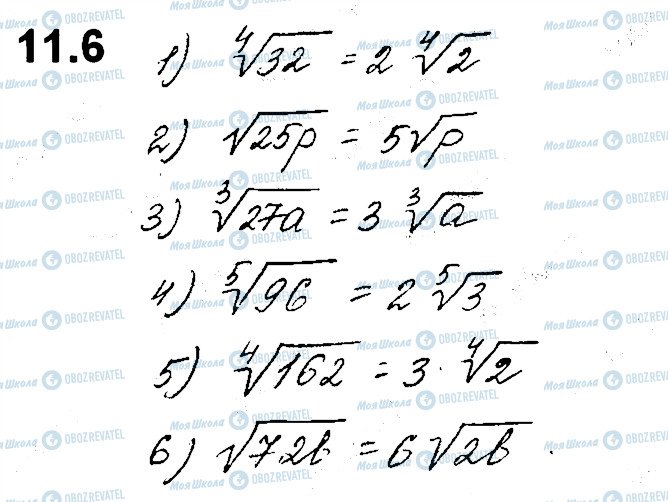 11.6
1) ∜32 = 2 ∜2
2) √25p = 5√p
3) ∛27a = 3 ∛a
4) ⁵√96 = 2 ⁵√3
5) ∜162 = 3 · ∜2
6) √72b = 6√2b .
Моя Школа OBOZREVATEL